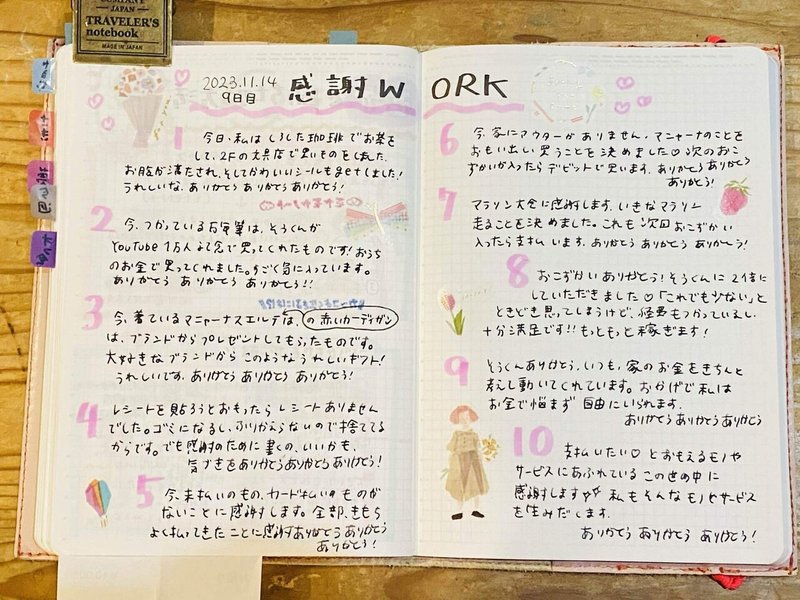 COMPANY
JAPAN
TRAVELER'S
notebook
MADE IN JAPAN
2023.11.14
9日目
感謝WORK
1
今日、私はしろした珈琲でお茶を
して、2Fの文具店で買いものをしました。
お腹が満たされ、そしてかわいいシールもgetしました!
うれしいな、ありがとうありがとうありがとう!
2
今、つかっている万年筆は、そうくんが
YouTube 1万人記念で買ってくれたものです!おうち
のお金で買ってくれました。すごく気に入っています。
ありがとう ありがとう ありがとう!!
3
今、着ているマニャーナスエルテは、の赤いカーディガン
は、ブランドからプレゼントしてもらったものです。
大好きなブランドからこのようなうれしいギフト!
うれしいです。ありがとう ありがとう ありがとう!
4
レシートを貼ろうとおもったらレシートありません
でした。ゴミになるし、ふりかえらないので捨ててる
からです。でも感謝のために書くの、いいかも、
気づきをありがとうありがとうありがとう!
5
今、未払いのもの、カード払いのものが
ないことに感謝します。全部、きもち
よく払ってきたことに感謝ありがとうありがとう
ありがとう!
6
今、家にアウターがありません、マニャーナのことを
おもい出し買うことを決めました♡次のおこ
ずかいが入ったらデビットで買います、ありがとうありがとう
ありがとう!
7
マラソン大会に感謝します、いきなマラソン
走ることを決めました。これも次回おこずかい
入ったら支払います、ありがとう ありがとう ありがとう!
8
おこずかいありがとう!そうくんに2倍に
していただきました♡「これでも少ない」と
ときどき思ってしまうけど、経費もつかっているし、
十分満足です!!もっともっと稼ぎます!
9
そうくんありがとう、いつも、家のお金をきちんと
考え動いてくれています。おかげで私は
お金で悩まず 自由にいられます。
ありがとう ありがとう ありがとう
10
支払いたい♡とおもえるモノや
サービスにあふれているこの世の中に
感謝します 私もそんなモノとサービス
を生みだします.
ありがとう ありがとう ありがとう!